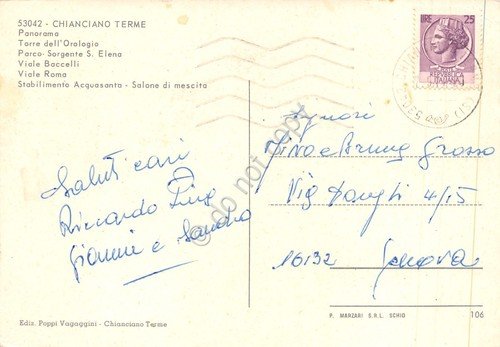 53042 - CHIANCIANO TERME
Panorama
Torre dell'Orologio
Parco Sorgente S. Elena
Viale Baccelli
Viale Roma
Stabilimento Acquasanta - Salone di mescita
LIRE 25
Saluti cari
Riccardo Pina
Gianni e Sandra
Signori
Dino e Bruna Grosso
Via 4/15
16132 Genova
do not copy
Ediz. Poppi Vagaggini - Chianciano Terme
P. MARZARI S.R.L. SCHIO
106